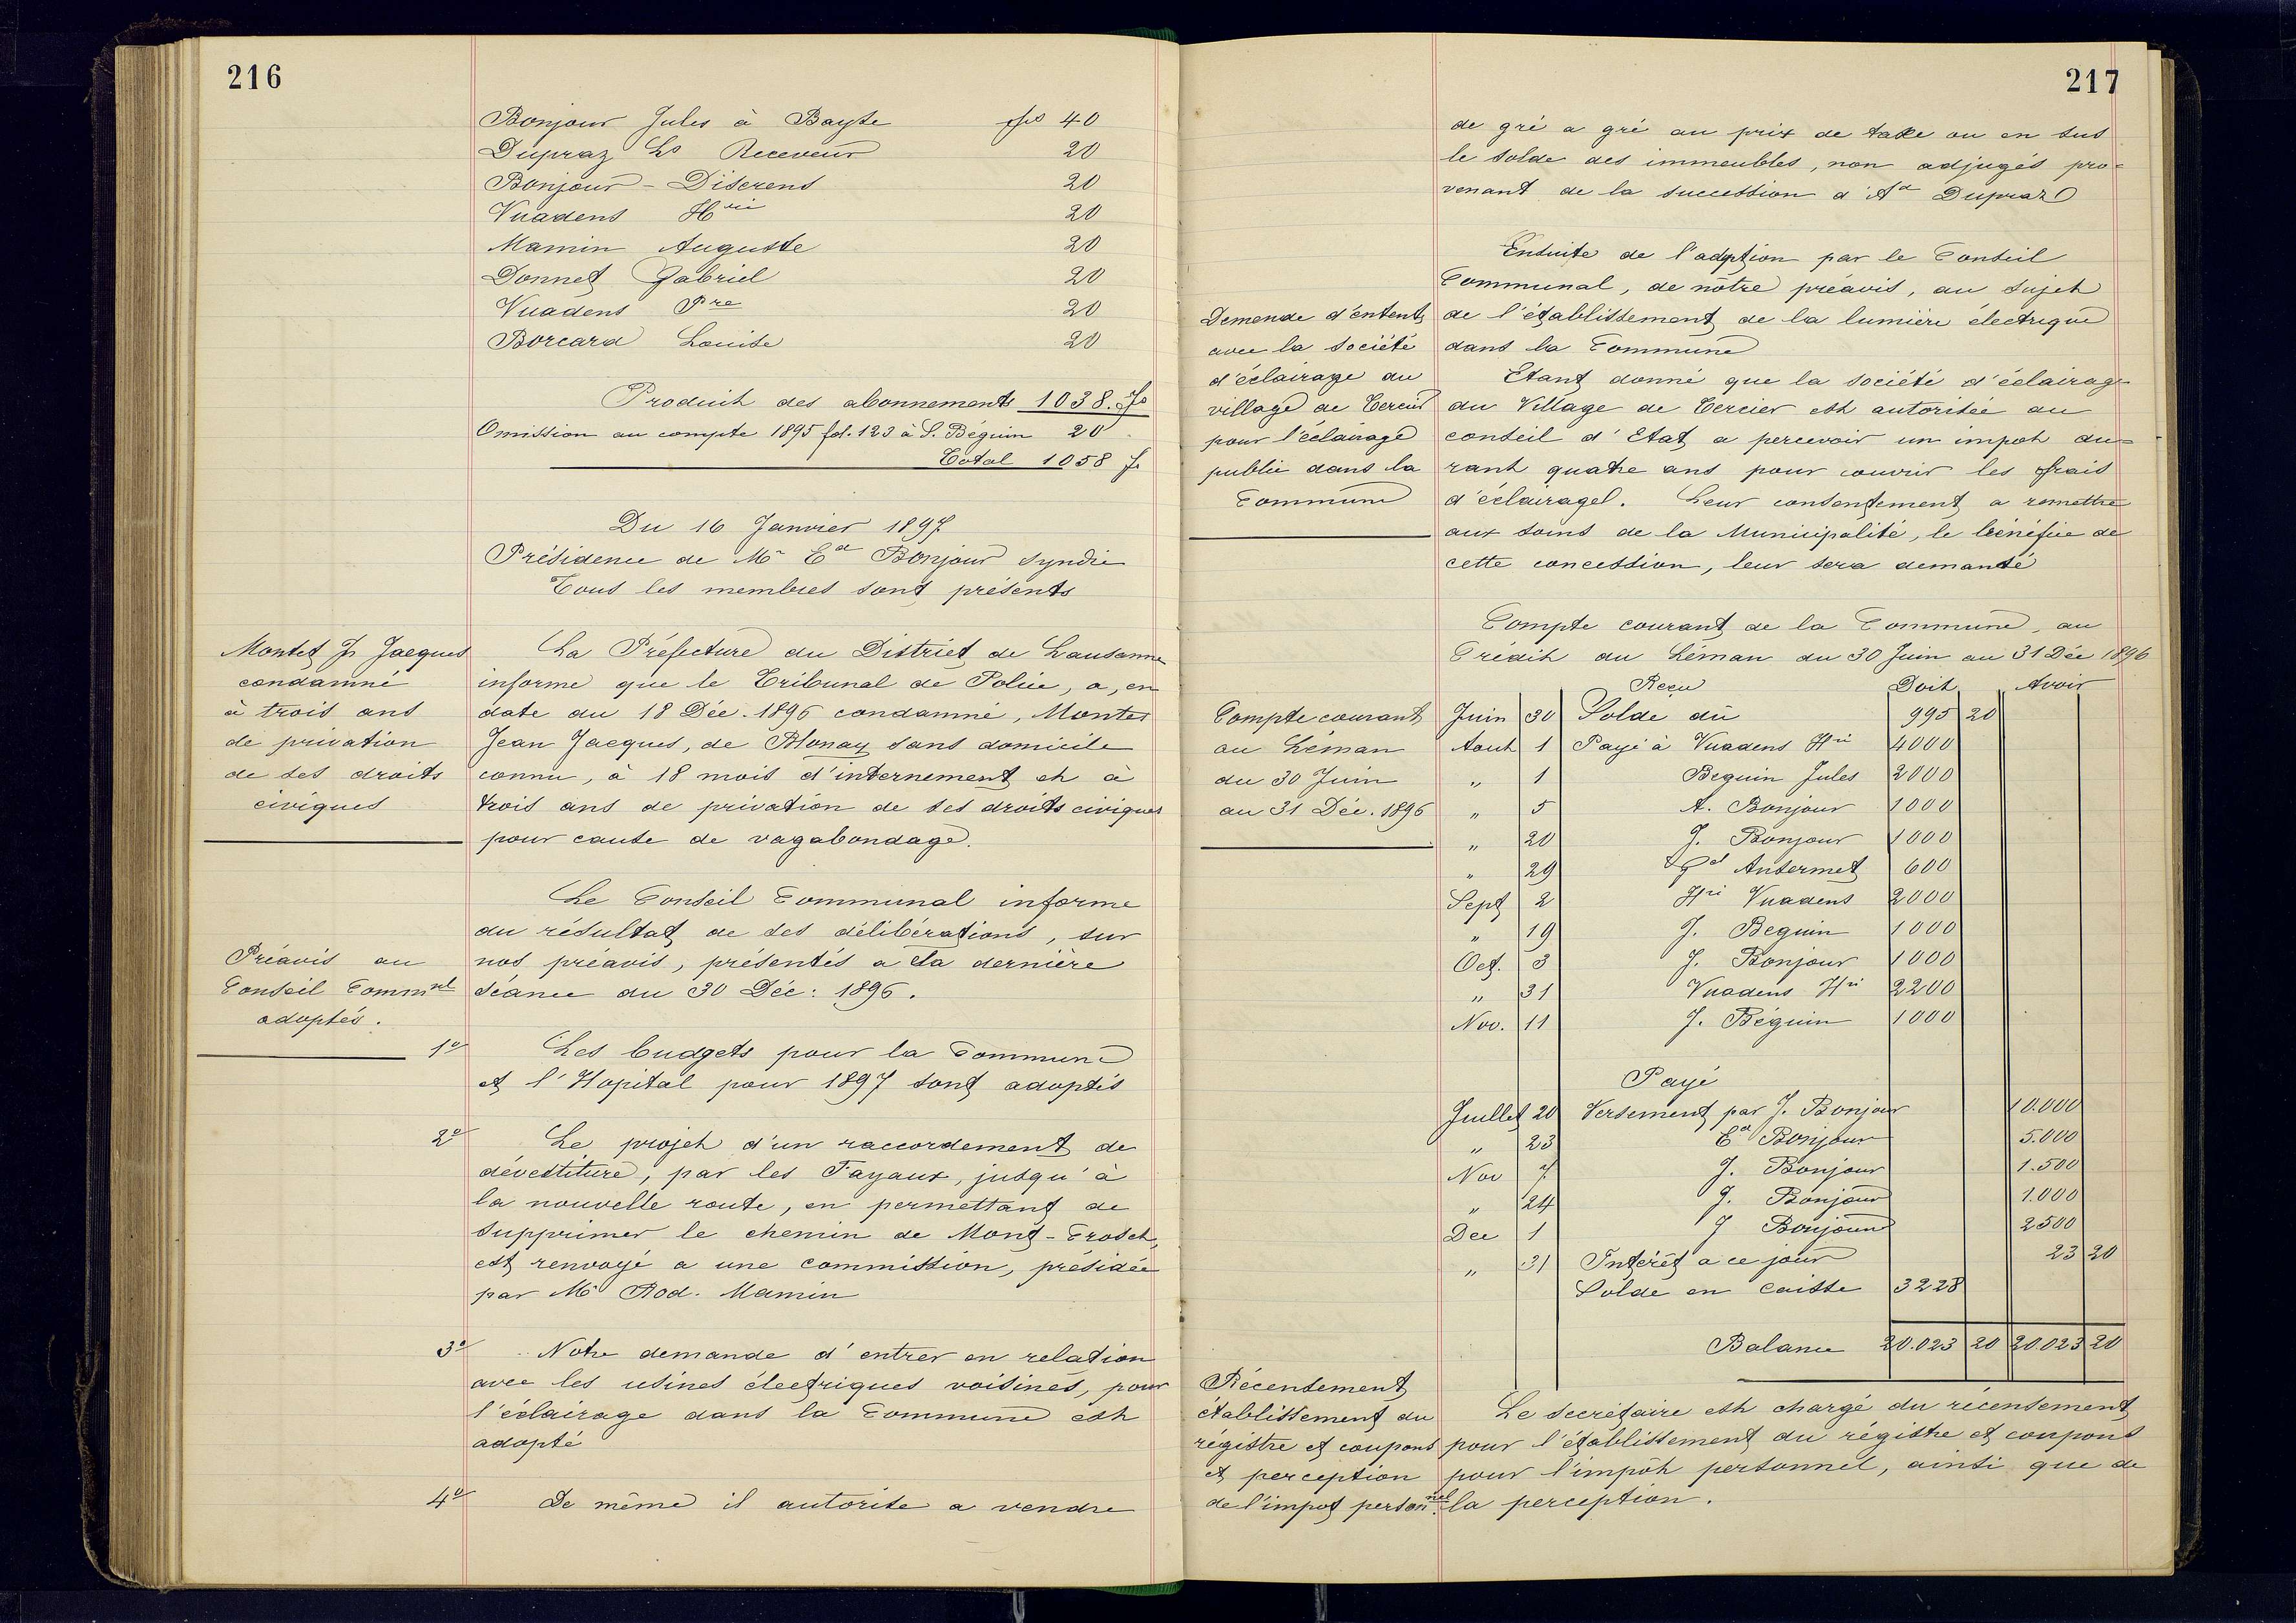 216
Bonjour Jules à Bayse frs 40
Dupraz Ls Receveur 20
Bonjour-Diserens 20
Vuadens Hri 20
Mamin Auguste 20
Donnet Gabriel 20
Vuadens Pre 20
Borcard Louise 20
Produit des abonnements 1038. fs
Omission au compte 1895 fol. 123 à S. Béguin 20
Total 1058 fs
Du 16 Janvier 1897
Présidence de Mr Ed Bonjour syndic
Tous les membres sont présents
Montet Jn Jacques
condamné
à trois ans
de privation
de ses droits
civiques
La Préfecture du District de Lausanne
informe que le Tribunal de Police, a, en
date du 18 Déc. 1896 condamné, Montet
Jean Jacques, de Blonay sans domicile
connu, à 18 mois d'internement et à
trois ans de privation de ses droits civiques
pour cause de vagabondage.
Préavis au
Conseil Commnl
adoptés.
Le Conseil Communal informe
du résultat de ses délibérations, sur
nos préavis, présentés a sa dernière
séance du 30 Déc: 1896.
1o Les budgets pour la Commune
et l'Hopital pour 1897 sont adoptés
2o Le projet d'un raccordement de
dévestiture, par les Fayaux, jusqu'à
la nouvelle route, en permettant de
supprimer le chemin de Mont-Croset,
est renvoyé a une commission, présidée
par Mr Rod. Mamin
3o Notre demande d'entrer en relation
avec les usines électriques voisines, pour
l'éclairage dans la Commune est
adopté
4o De même il autorise a vendre
217
de gré a gré au prix de taxe ou en sus
le solde des immeubles, non adjugés pro=
venant de la succession d'Ad Dupraz
Demande d'entente
avec la société
d'éclairage du
village de Cercier
pour l'éclairage
public dans la
Commune
Ensuite de l'adoption par le Conseil
Communal, de nôtre préavis, au sujet
de l'établissement de la lumière électrique
dans la Commune
Etant donné que la société d'éclairage
du Village de Cercier est autorisée au
conseil d'Etat a percevoir un impot du=
rant quatre ans pour couvrir les frais
d'éclairage. Leur consentement a remettre
aux soins de la Municipalité, le bénéfice de
cette concession, leur sera demandé
Compte courant
au Léman
du 30 Juin
au 31 Déc. 1896
Compte courant de la Commune, au
Crédit du Léman du 30 Juin au 31 Déc 1896
Reçu Doit Avoir
Juin 30 Solde dû 995 20
Aout 1 Payé à Vuadens Hri 4000
" 1 Beguin Jules 2000
" 5 A. Bonjour 1000
" 20 J. Bonjour 1000
" 29 Ansermet 600
Sept 2 Hri Vuadens 2000
" 19 J. Beguin 1000
Oct. 3 J. Bonjour 1000
" 31 Vuadens Hri 2200
Nov. 11 J. Béguin 1000
Payé
Juillet 20 Versement par J. Bonjour 10.000
" 23 Ed Bonjour 5.000
Nov 7 J. Bonjour 1.500
" 24 J. Bonjour 1.000
Dec 1 J Bonjour 2500
" 31 Intérêt a ce jour 23 20
Solde en caisse 3228
Balance 20.023 20 20.023 20
Récensement
établissement du
régistre et coupons
et perception
de l'impot personnel.
Le secrétaire est chargé du récensement
pour l'établissement du régistre et coupons
pour l'impôt personnel, ainsi que de
la perception.